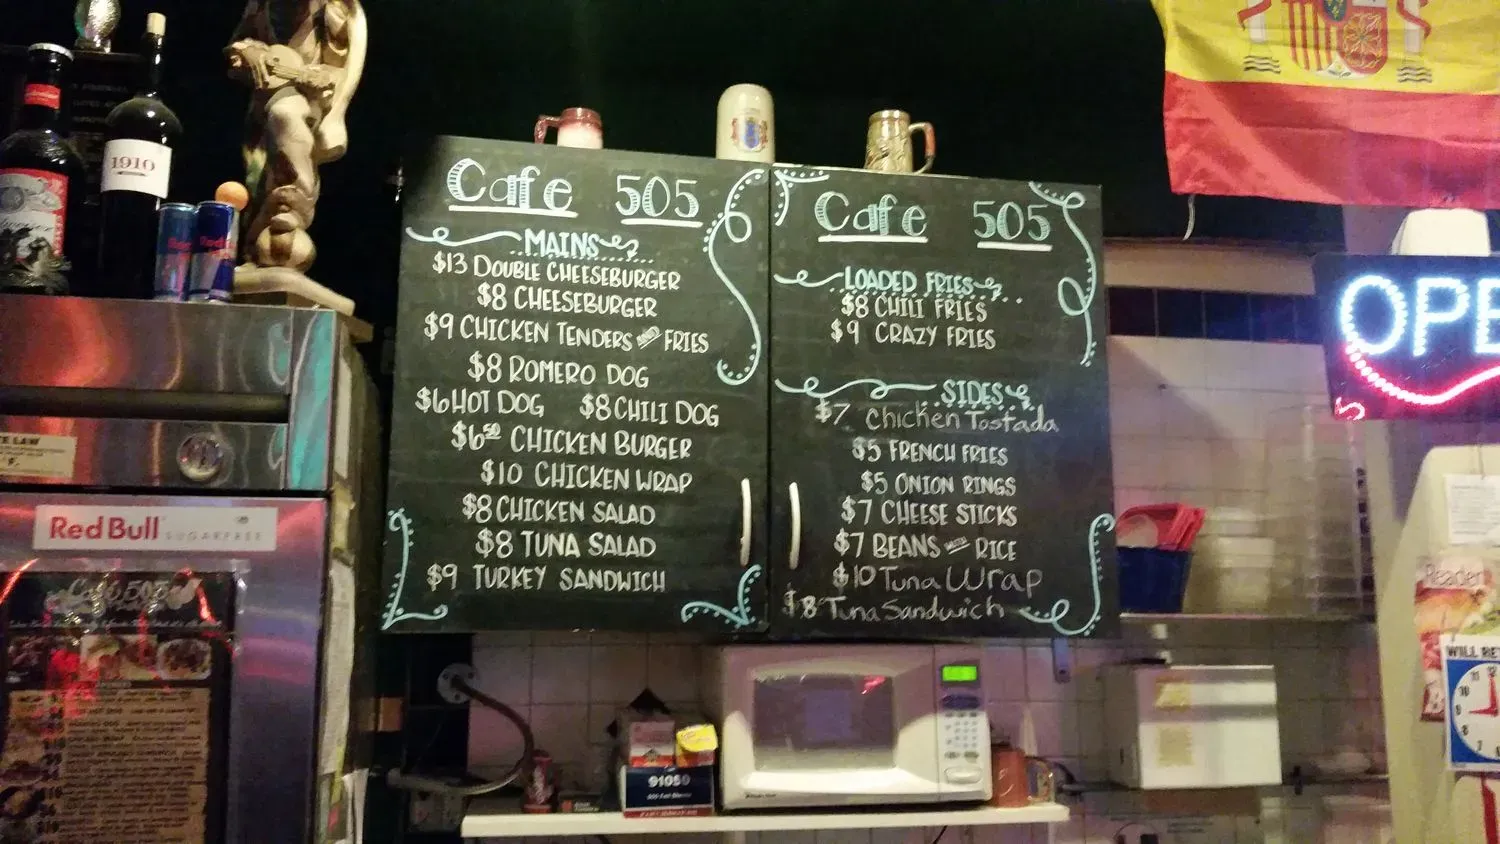 Cafe 505
MAINS
$13 DOUBLE CHEESEBURGER
$8 CHEESEBURGER
$9 CHICKEN TENDERS AND FRIES
$8 ROMERO DOG
$6 HOT DOG $8 CHILI DOG
$6 50 CHICKEN BURGER
$10 CHICKEN WRAP
$8 CHICKEN SALAD
$8 TUNA SALAD
$9 TURKEY SANDWICH
Cafe 505
LOADED FRIES
$8 CHILI FRIES
$9 CRAZY FRIES
SIDES
$7 Chicken Tostada
$5 FRENCH FRIES
$5 ONION RINGS
$7 CHEESE STICKS
$7 BEANS WITH RICE
$10 Tuna Wrap
$8 Tuna Sandwich
1910
Red Bull
SUGARFREE
Café 505
LAW
OPE
Reader
WILL RE
91050